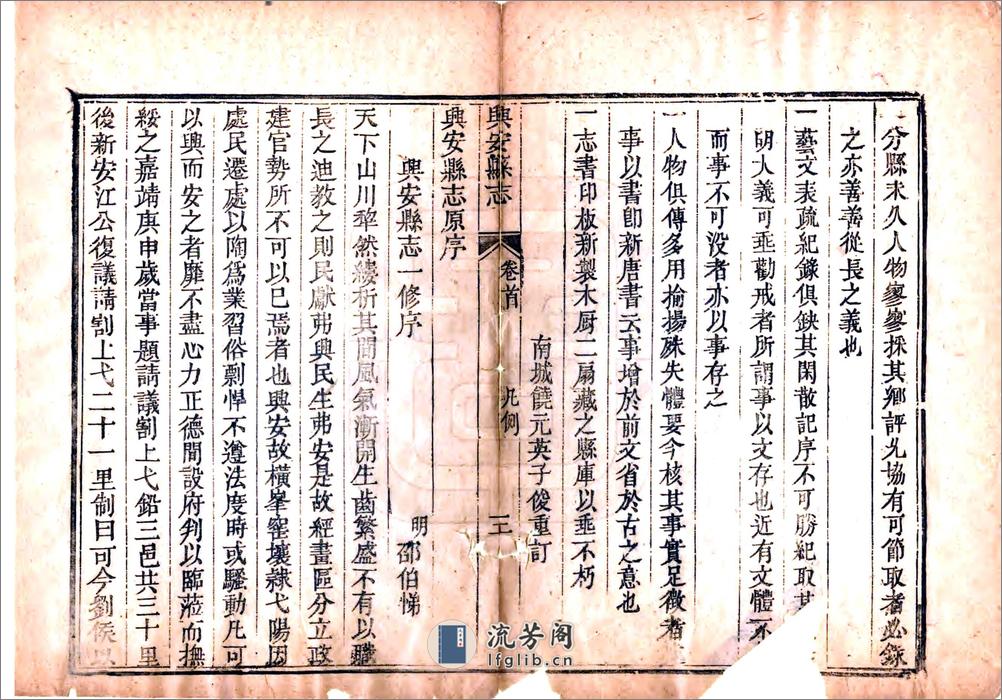 一分縣未久人物寥寥採其鄉評允協有可節取者必錄
之亦善善從長之義也
一藝文表疏紀錄俱鈌其閑散記序不可勝紀取其
明人義可垂勸戒者所謂事以文存也近有文體不
而事不可没者亦以事存之
一人物俱傳多用揄揚殊失體要今核其事實足徵者
事以書卽新唐書云事增於前文省於古之意也
一志書印板新製木厨二扇藏之縣庫以垂不朽
南城饒元英子俊重訂
興安縣志
卷首
凡例
三
興安縣志原序
興安縣志一修序
明 邵伯悌
天下山川犂然縷析其間風氣漸開生齒繁盛不有以聽
長之迪教之則民獻弗興民生弗安是故經畫區分立政
建官勢所不可以已焉者也興安故橫峯窰壤隷弋陽因
處民遷處以陶爲業習俗剽悍不遵法度時或騷動凡可
以興而安之者靡不盡心力正德間設府判以臨蒞而撫
綏之嘉靖庚申歲當事題請議割上弋鉛三邑共三十里
後新安江公復議請割上弋二十一里制曰可今劉侯以
流芳阁
lfglib.cn